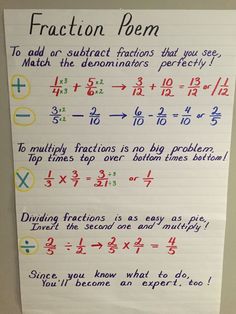 Fraction Poem
To add or subtract fractions that you see,
Match the denominators perfectly!
+ 1/4 ×3 ×3 + 5/6 ×2 ×2 → 3/12 + 10/12 = 13/12 or 1 1/12
- 3/5 ×2 ×2 - 2/10 → 6/10 - 2/10 = 4/10 or 2/5
To multiply fractions is no big problem.
Top times top over bottom times bottom!
× 1/3 × 3/7 = 3/21 ÷3 ÷3 or 1/7
Dividing fractions is as easy as pie,
Invert the second one and multiply!
÷ 2/5 ÷ 1/2 → 2/5 × 2/1 = 4/5
Since you know what to do,
You'll become an expert, too!